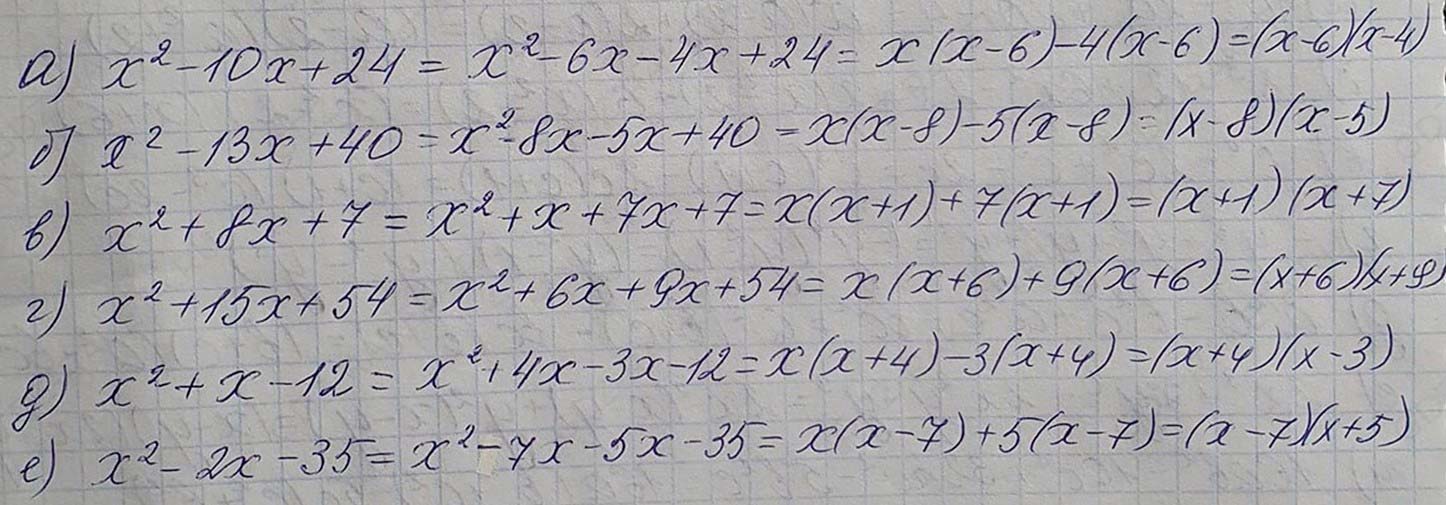 а) x² - 10x + 24 = x² - 6x - 4x + 24 = x(x - 6) - 4(x - 6) = (x - 6)(x - 4)
б) x² - 13x + 40 = x² - 8x - 5x + 40 = x(x - 8) - 5(x - 8) = (x - 8)(x - 5)
в) x² + 8x + 7 = x² + x + 7x + 7 = x(x + 1) + 7(x + 1) = (x + 1)(x + 7)
г) x² + 15x + 54 = x² + 6x + 9x + 54 = x(x + 6) + 9(x + 6) = (x + 6)(x + 9)
д) x² + x - 12 = x² + 4x - 3x - 12 = x(x + 4) - 3(x + 4) = (x + 4)(x - 3)
е) x² - 2x - 35 = x² - 7x - 5x - 35 = x(x - 7) + 5(x - 7) = (x - 7)(x + 5)